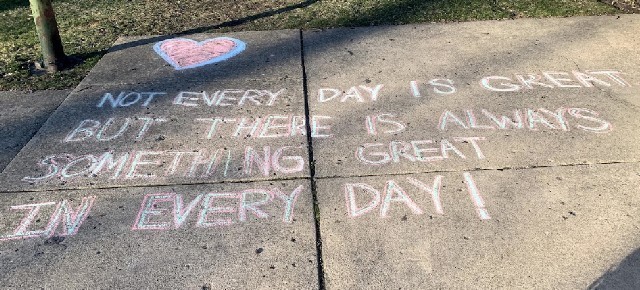 NOT EVERY DAY IS GREAT
BUT THERE IS ALWAYS
SOMETHING GREAT
IN EVERY DAY!